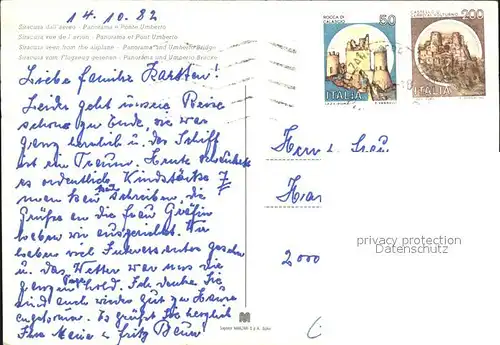 14.10.82
Siracusa dall'aereo - Panorama e Ponte Umberto
Siracuse vue de l'avion - Panorama et Pont Umberto
Siracusa seen from the airplane - Panorama and Umberto Bridge
Siracusa vom Flugzeug gesehen - Panorama und Umberto Brücke
ROCCA DI CALASCIO
50
ITALIA
200
ITALIA
Liebe Familie
Leider geht unsere Reise
schon zu Ende, sie war
ganz herrlich u. das Schiff
ist ein Traum. Heute
es ordentlich Windstärke 7
man kann schreiben, die
Grüße an die Frau Gräfin
haben wir ausgerichtet. Wir
haben viel Interessantes gesehen
u. das Wetter war uns die
ganze hold. Ich denke Sie
sind auch wieder gut zu Hause
Es grüßt Sie herzlich
Ihre Maria u. Fritz
Herrn u. Frau
Har
2000
privacy protection
Datenschutz